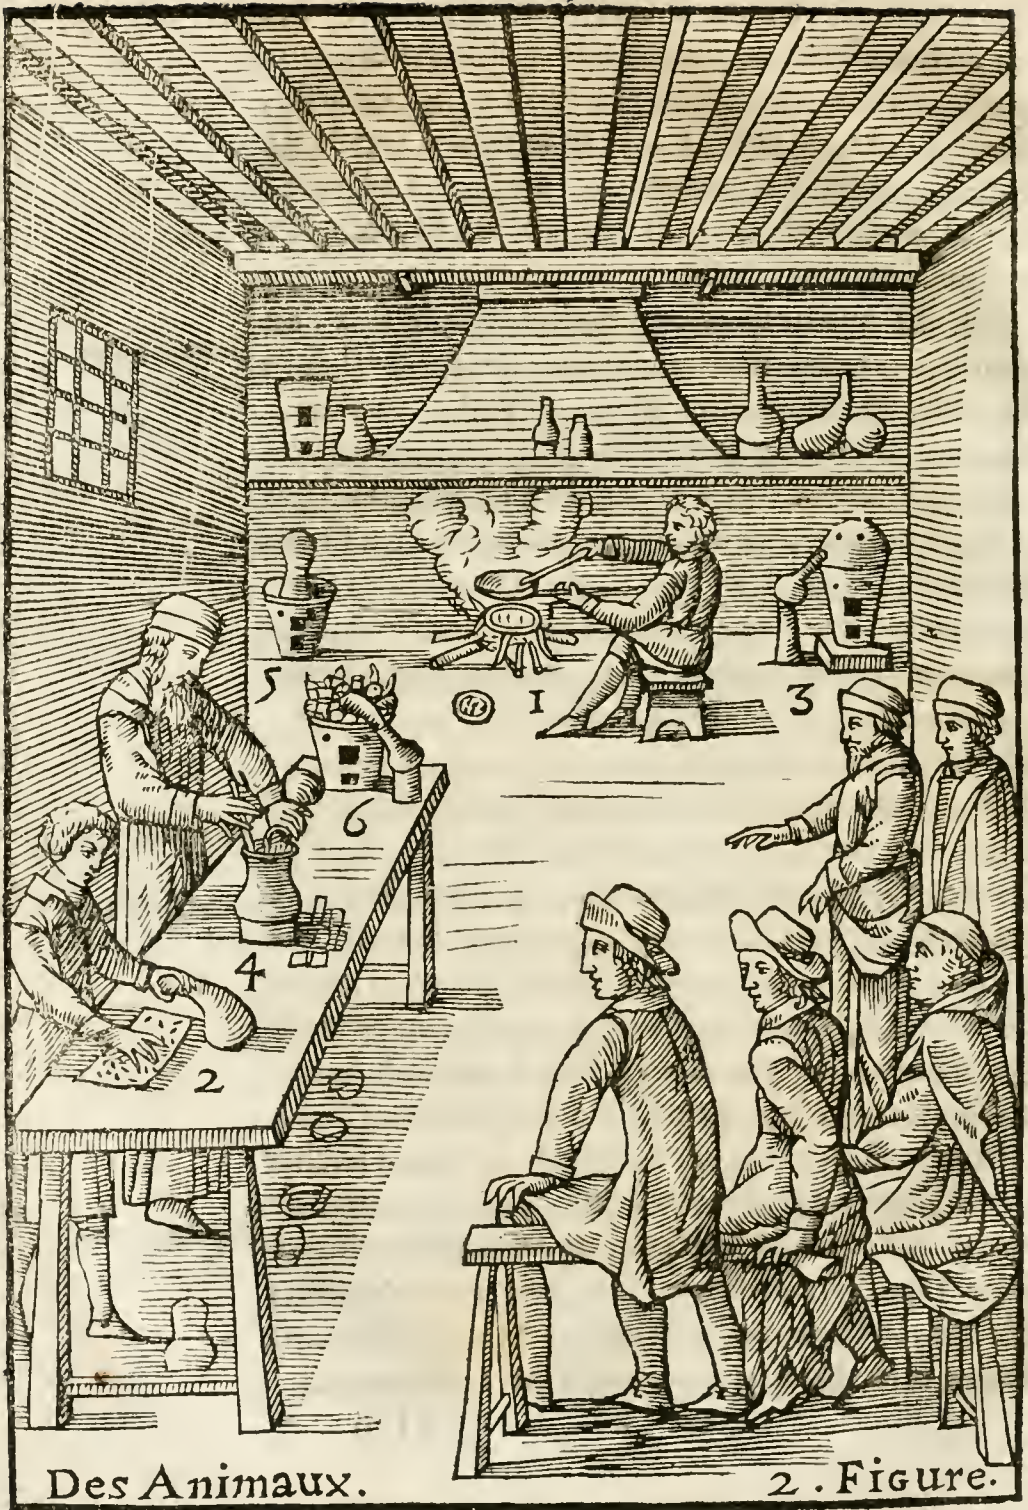 5
1
3
6
4
2
Des Animaux. 2. Figure.